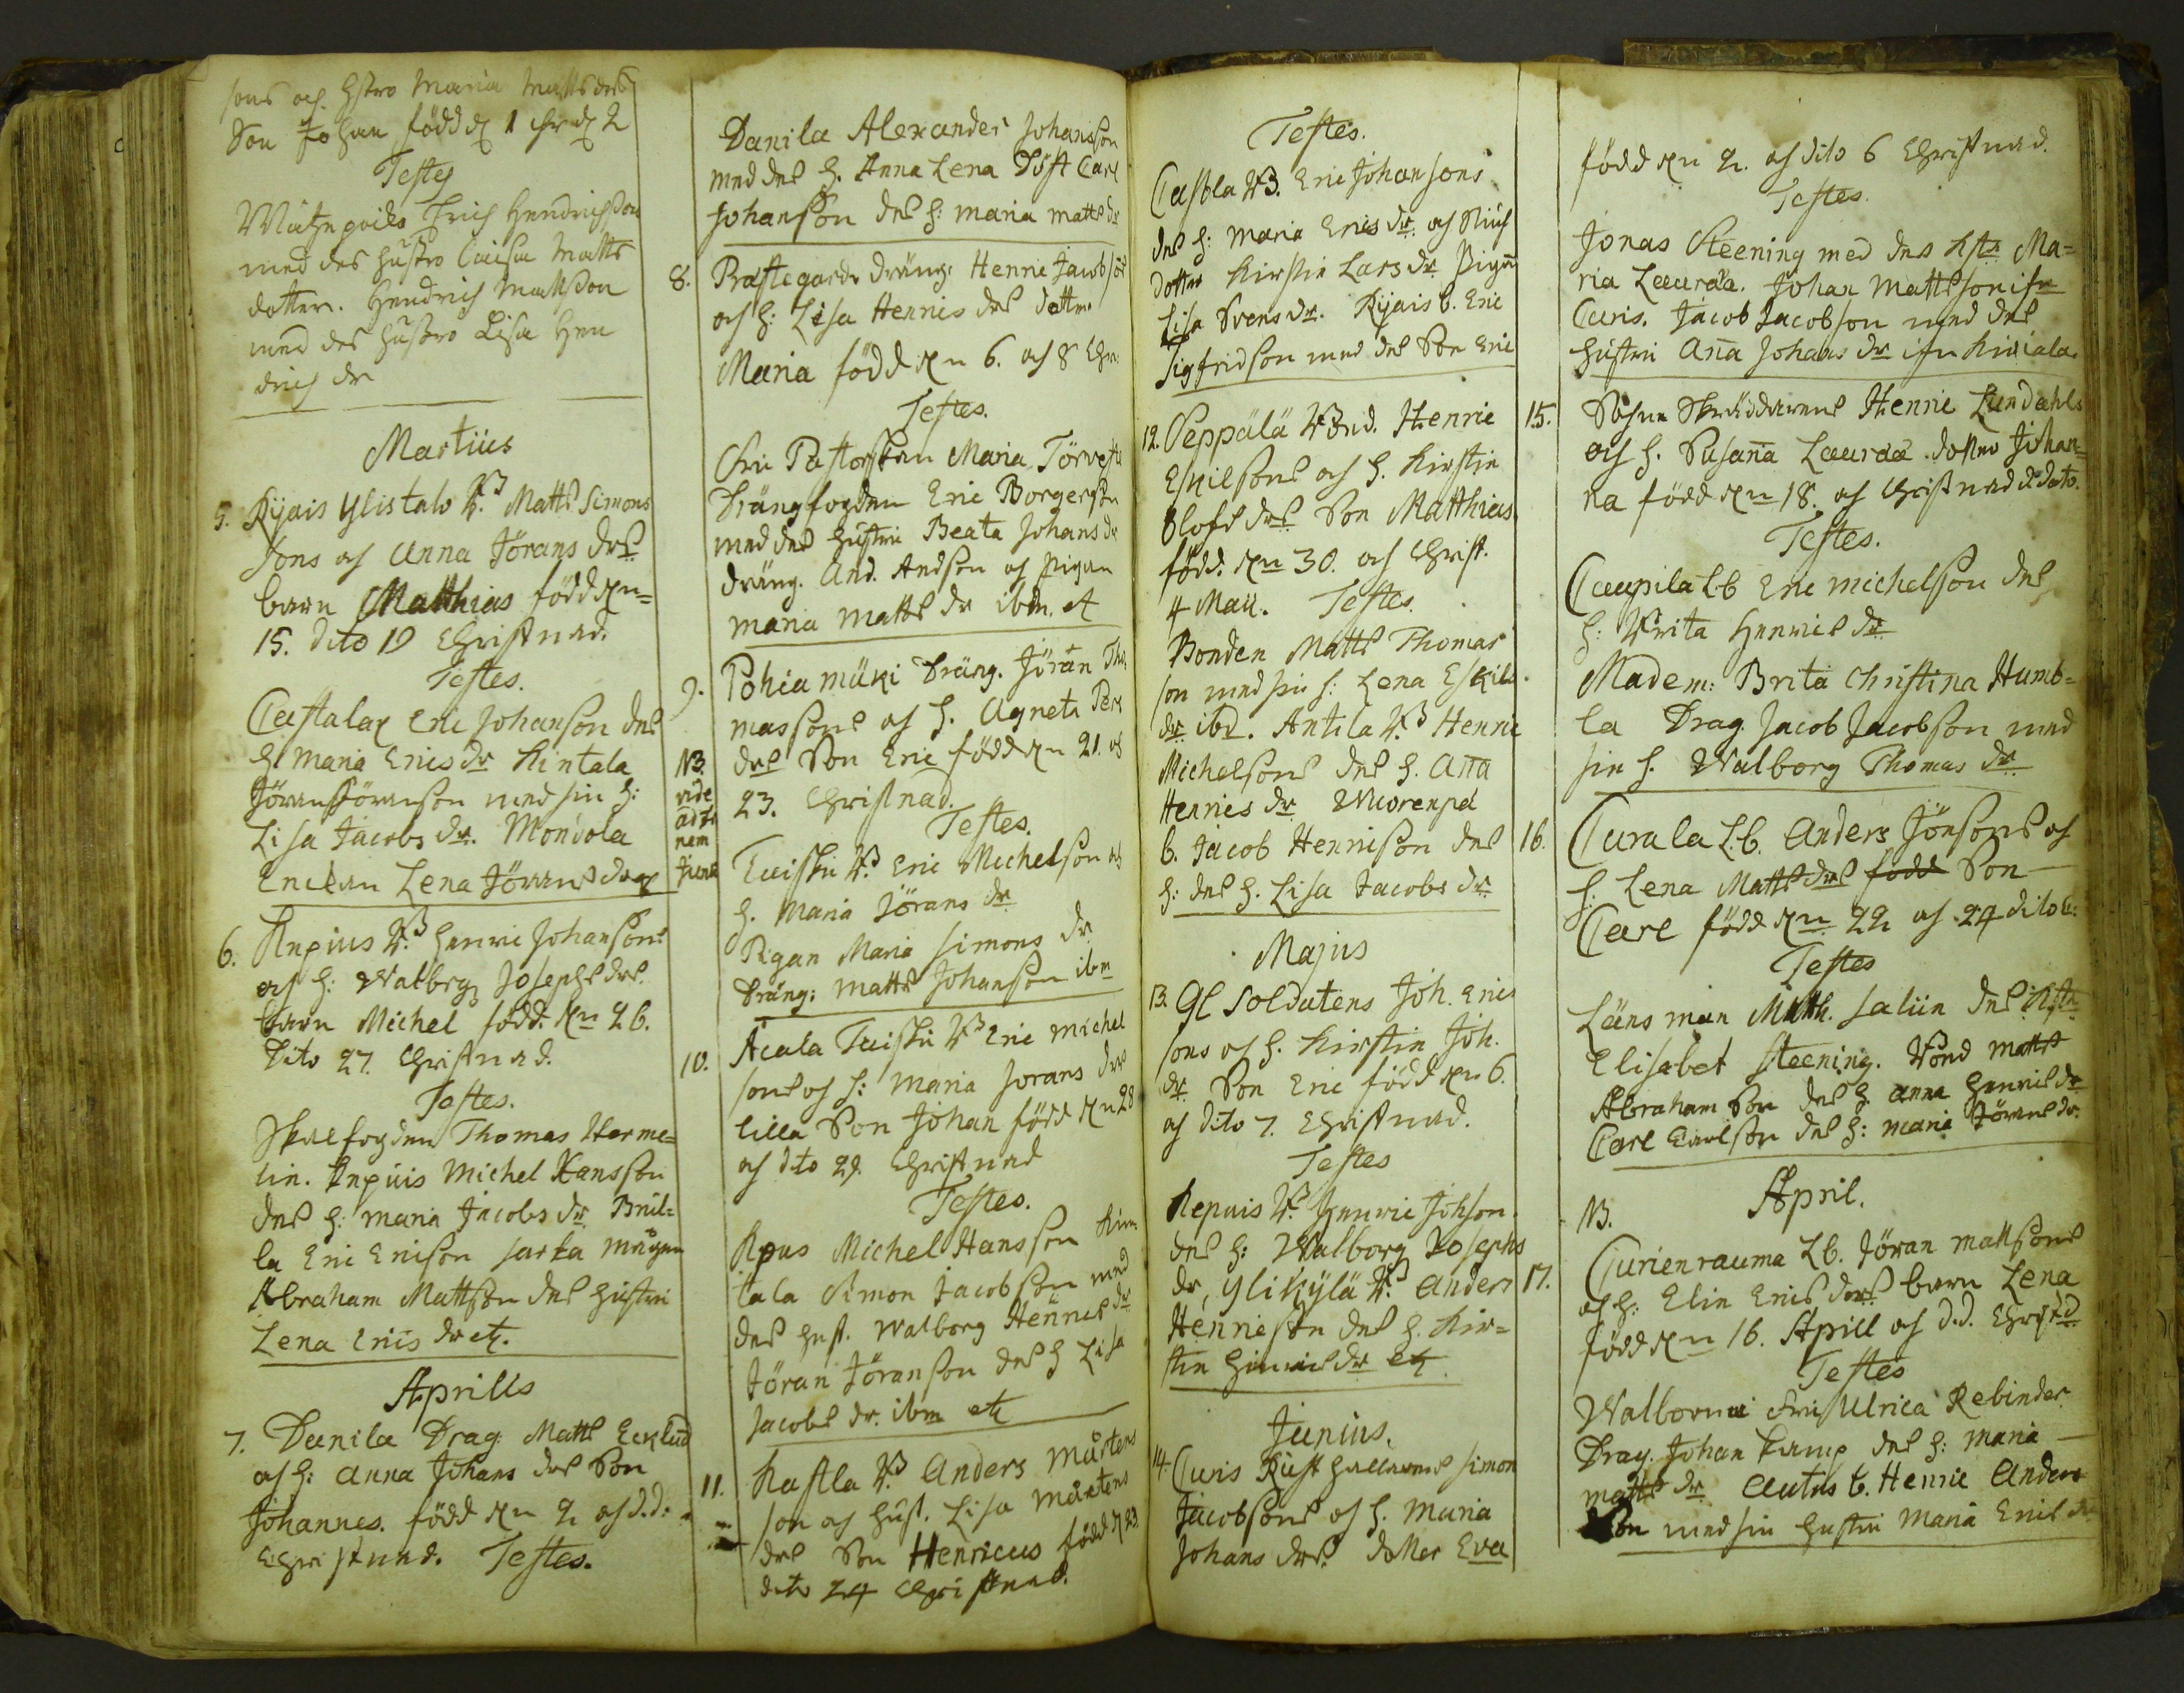 sons och Hstro Maria Matts drs
Son Johan född d 1 chr d 2
Testes
Erich Hendrichson
med des hustro Caisa Matts
dotter. Hendrich Mattson
med des hustro Lisa Hen
drichs dr
Martius
5. Kijais Ylistalo B. Matts Simons
sons och Anna Jörans drs
barn Matthias född dn
15. dito 19 Christnad.
Testes.
Castalax Eric Johanson des
H Maria Erics dr Kintala
Jöran Jöranson med sin H:
Lisa Jacobs dr. Mondola
Enckan Lena Jörans dr
6. B. Henric Johansons
och H: Walbrg Josephs drs
barn Michel född dn 26.
Dito 27. Christnad.
Testes.
Thomas Harme=
lin. Michel Hansson
des H: Maria Jacobs dr
la Eric Ericson
Abraham Mattson des hustru
Lena Erics dr etc.
Aprilis
7. Danila Drag. Matts Ecklund
och H: Anna Johans drs Son
Johannes. född dn 2 och d.d:
Christnad. Testes.
Danila Alexander Johansson
med des H. Anna Lena Carl
Johanson des H: Maria Matts dr
8. Prästegårds dräng: Henric Jacobson
och H: Lisa Henrics drs dotter
Maria född dn 6. och 8 Chr:
Testes.
Fru Pastorskan Maria
Drängfogden Eric Borgerson
med des hustru Beata Johans dr
dräng. And. Andson och pigan
Maria Matts dr ibm. et
9. Pohiamäki Dräng. Jöran Tho
massons och H. Agneta Pers
drs Son Eric född dn 21. och
23. Christnad.
NB.
vide
ad fi
nem
Testes.
B. Eric Michelson och
H. Maria Jörans dr
Pigan Maria Simons dr
Dräng: Matts Johanson ibm
10. Acala B Eric Michel
sons och H: Maria Jorans drs
lilla Son Johan född dn 28
och dito 29. Christnad
Testes.
Michel Hansson Kin
tala Simon Jacobson med
des hust. Walborg Henrics dr
Jöran Jöranson des H Lisa
Jacobs dr. ibm etc
11. Kastla B Anders Mårtens
son och hust. Lisa Mårtens
drs Son Henricus född d 23.
dito 24 Christnad.
Testes.
Castla B. Eric Johansons
des H: Maria Erics dr. och
dotter Kirstin Lars dr Pigan
Lisa Svens dr. Kijais b. Eric
Sigfridson med des Son Eric
12. Peppälä Bond. Henric
Eskilsons och H. Kirstin
Olofs drs Son Matthias
född. dn 30. och Christ.
4 Maii. Testes.
Bonden Matts Thomas
son med sin H: Lena Eskils
dr ibd. Antila B Henric
Michelsons des H. Anna
Henrics dr Wuorenpä
b. Jacob Henricson des
H: des H. Lisa Jacobs dr
Majus
13. Gl Soldatens Joh. Erics
sons och H. Kirstin Joh.
dr. Son Eric född dn 6.
och dito 7. Christnad.
Testes
B. Henric Johson.
des H: Walborg Josephs
dr, Ylikylä B. Anders
Henricson des H. Kir=
stin Henrics dr etc
Junius.
14. Curis Rust hållarens Simon
Jacobsons och H. Maria
Johans drs. dotter Eva
född dn 2. och dito 6 Christnad.
Testes.
Jonas Steening med des hstr Ma=
ria Laurda. Johan Mattson ifr
Curis. Jacob Jacobson med des
hustru Anna Johans dr ifr Kiviala.
15. Sohn Skräddarens Henric Lundahls
och H. Susanna Laurda dotter Johan=
na född dn 18. och Christnad d. dato.
Testes.
Caupila Lb Eric Michelson des
H: Brita Henrics dr
Madem: Brita Christina Humb=
la Drag. Jacob Jacobson med
sin H. Walborg Thomas dr
16. Curala Lb. Anders Jönsons och
H: Lena Matts drs född Son
Carl född dn 22 och 24 dito C:
Testes
Länsman Matth. Saliin des hstr
Elisabet Steening. Bond Matts
Abraham Son des H. Anna Henrics dr
Carl Carlson des H: Maria Jörans dr.
April.
NB.
17. Curienrauma Lb. Jöran Mattsons
och H: Elin Erics drs barn Lena
född dn 16. April och d.d. Christd
Testes
Fru Ulrica Rebinder
Drag. Johan Kamp des H: Maria
Matts dr Autus b. Henric Anders
Son med sin hustru Maria Erics dr